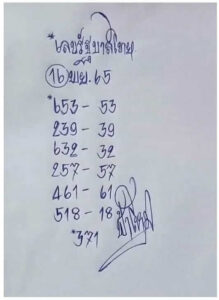 *เลขรัฐบาลไทย
16 เม.ย. 65
*653 - 53
239 - 39
632 - 32
257 - 57
461 - 61
518 - 18
*371